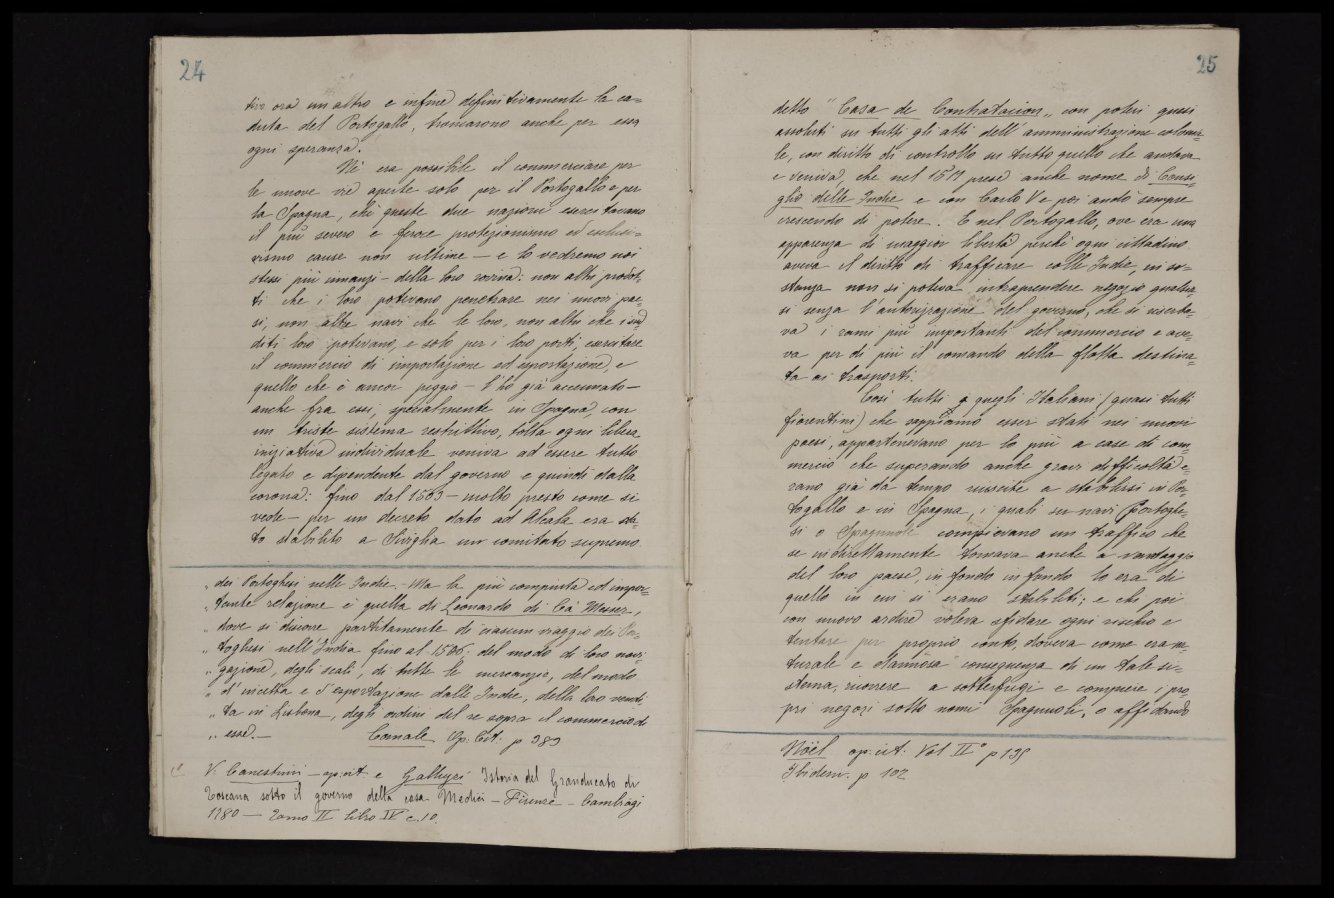 24
tir ora un altro e infine definitivamente la ca=
duta del Portogallo, troncarono anche per essa
ogni speranza.
Nè era possibile il commerciare per
le nuove vie aperte solo per il Portogallo e per
la Spagna, chè queste due nazioni esercitavano
il più severo e feroce protezionismo ed esclusi=
vismo cause non ultime — e lo vedremo noi
stessi più innanzi — della loro rovina: non altri prodot=
ti che i loro potevano penetrare nei nuovi pae=
si, non altre navi che le loro, non altri che i sud
diti loro potevano, e solo per i loro porti, esercitare
il commercio di importazione ed esportazione, e
quello che è ancor peggio — l'ho già accennato —
anche fra essi, specialmente in Spagna, con
un triste sistema restrittivo, tolta ogni libera
iniziativa individuale veniva ad essere tutto
legato e dipendente dal governo e quindi dalla
corona: fino dal 1503 — molto presto come si
vede — per un decreto dato ad Alcala era sta=
to stabilito a Siviglia un comitato supremo
„ dei Portoghesi nelle Indie. — Ma la più compiuta ed impor=
„ tante relazione è quella di Leonardo di Cà Messer,
„ dove si discorre partitamente di ciascun viaggio dei Por=
„ toghesi nell'India fino al 1506: del modo di loro navi=
„ gazione, degli scali, di tutte le mercanzie, del modo
„ d'incetta e d'esportazione dalle Indie, della loro vendi=
„ ta in Lisbona, degli ordini del re sopra il commercio di
„ esse. — Canale Op. Cit. p 389
V. Canestrini — op. cit. e Galluzzi Istoria del Granducato di
Toscana sotto il governo della casa Medici — Firenze — Cambiagi
1780 — Tomo II libro IV c. 10.
25
detto " Casa de Contratacion „ con poteri quasi
assoluti su tutti gli atti dell'amministrazione colonia=
le, con diritto di controllo su tutto quello che andava
e veniva, che nel 1517 prese anche nome di Consi=
glio delle Indie e con Carlo V e poi andò sempre
crescendo di potere. E nel Portogallo, ove era una
apparenza di maggior libertà perchè ogni cittadino
aveva il diritto di trafficare colle Indie, in so=
stanza non si poteva intraprendere negozio qualsia=
si senza l'autorizzazione del governo, che si riserba=
va i rami più importanti del commercio e ave=
va per di più il comando della flotta destina=
ta ai trasporti.
Così tutti quegli Italiani (quasi tutti
fiorentini) che sappiamo esser stati nei nuovi
paesi, appartenevano per lo più a case di com=
mercio che superando anche gravi difficoltà e=
rano già da tempo riuscite a stabilirsi in Por=
togallo e in Spagna, i quali su navi Portoghe=
si o Spagnuole compievano un traffico che
se indirettamente tornava anche a vantaggio
del loro paese, in fondo in fondo lo era di
quello in cui si erano stabiliti; e chi poi
con nuovo ardire voleva sfidare ogni rischio e
tentare per proprio conto, doveva come era na=
turale e dannosa conseguenza di un tale si=
stema, ricorrere a sotterfugi e compiere i pro=
pri negozi sotto nomi Spagnuoli, o affidando
Nöel op. cit. Vol II° p 135
Ibidem. p 102